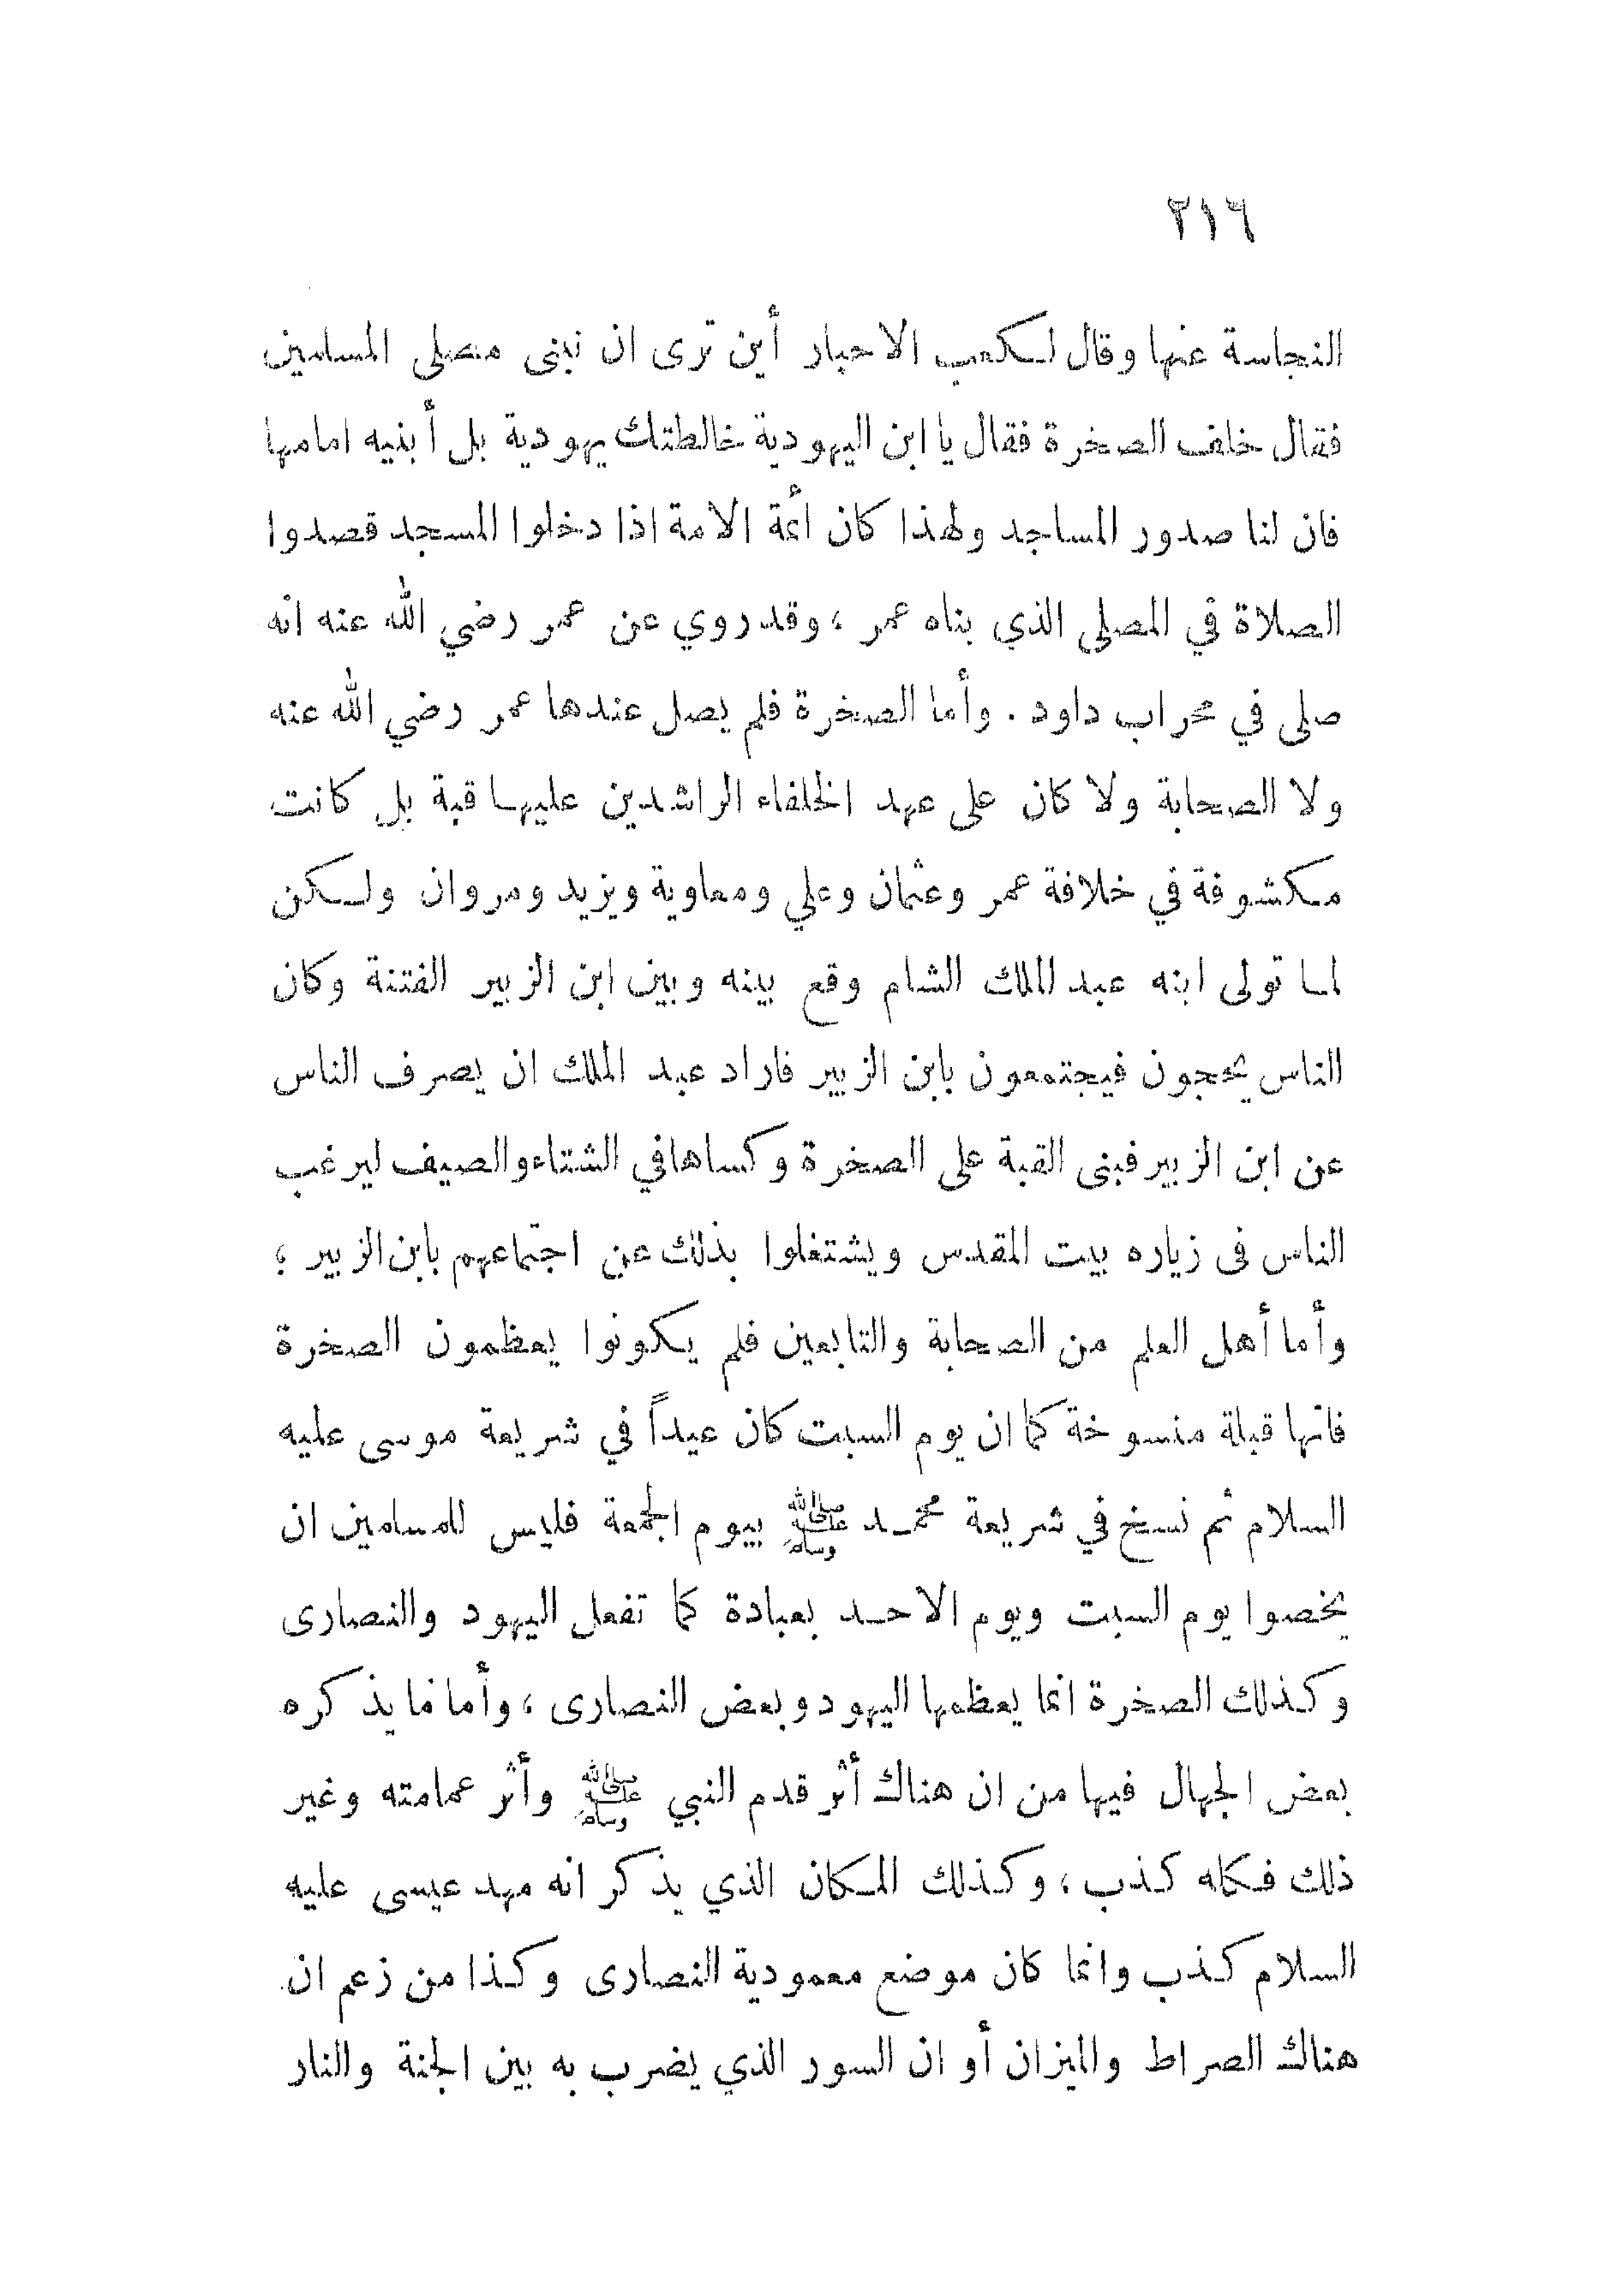 ٢١٦
النجاسة عنها وقال لكعب الاحبار أين ترى ان نبنى مصلى المسلمين
فقال خلف الصخرة فقال يا ابن اليهودية خالطتك يهودية بل أبنيه امامها
فان لنا صدور المساجد ولهذا كان أئمة الامة اذا دخلوا المسجد قصدوا
الصلاة في المصلى الذي بناه عمر ، وقد روي عن عمر رضي الله عنه انه
صلى في محراب داود . وأما الصخرة فلم يصل عندها عمر رضي الله عنه
ولا الصحابة ولا كان على عهد الخلفاء الراشدين عليها قبة بل كانت
مكشوفة في خلافة عمر وعثمان وعلي ومعاوية ويزيد ومروان ولكن
لما تولى ابنه عبد الملك الشام وقع بينه وبين ابن الزبير الفتنة وكان
الناس يحجون فيجتمعون بابن الزبير فاراد عبد الملك ان يصرف الناس
عن ابن الزبير فبنى القبة على الصخرة وكساها في الشتاء والصيف ليرغب
الناس فى زياره بيت المقدس ويشتغلوا بذلك عن اجتماعهم بابن الزبير ؛
وأما أهل العلم من الصحابة والتابعين فلم يكونوا يعظمون الصخرة
فانها قبلة منسوخة كما ان يوم السبت كان عيداً في شريعة موسى عليه
السلام ثم نسخ في شريعة محمد ﷺ بيوم الجمعة فليس للمسلمين ان
يخصوا يوم السبت ويوم الاحد بعبادة كما تفعل اليهود والنصارى
وكذلك الصخرة انما يعظمها اليهود وبعض النصارى ، وأما ما يذكره
بعض الجهال فيها من ان هناك أثر قدم النبي ﷺ وأثر عمامته وغير
ذلك فكله كذب ، وكذلك المكان الذي يذكر انه مهد عيسى عليه
السلام كذب وانما كان موضع معمودية النصارى وكذا من زعم ان
هناك الصراط والميزان أو ان السور الذي يضرب به بين الجنة والنار